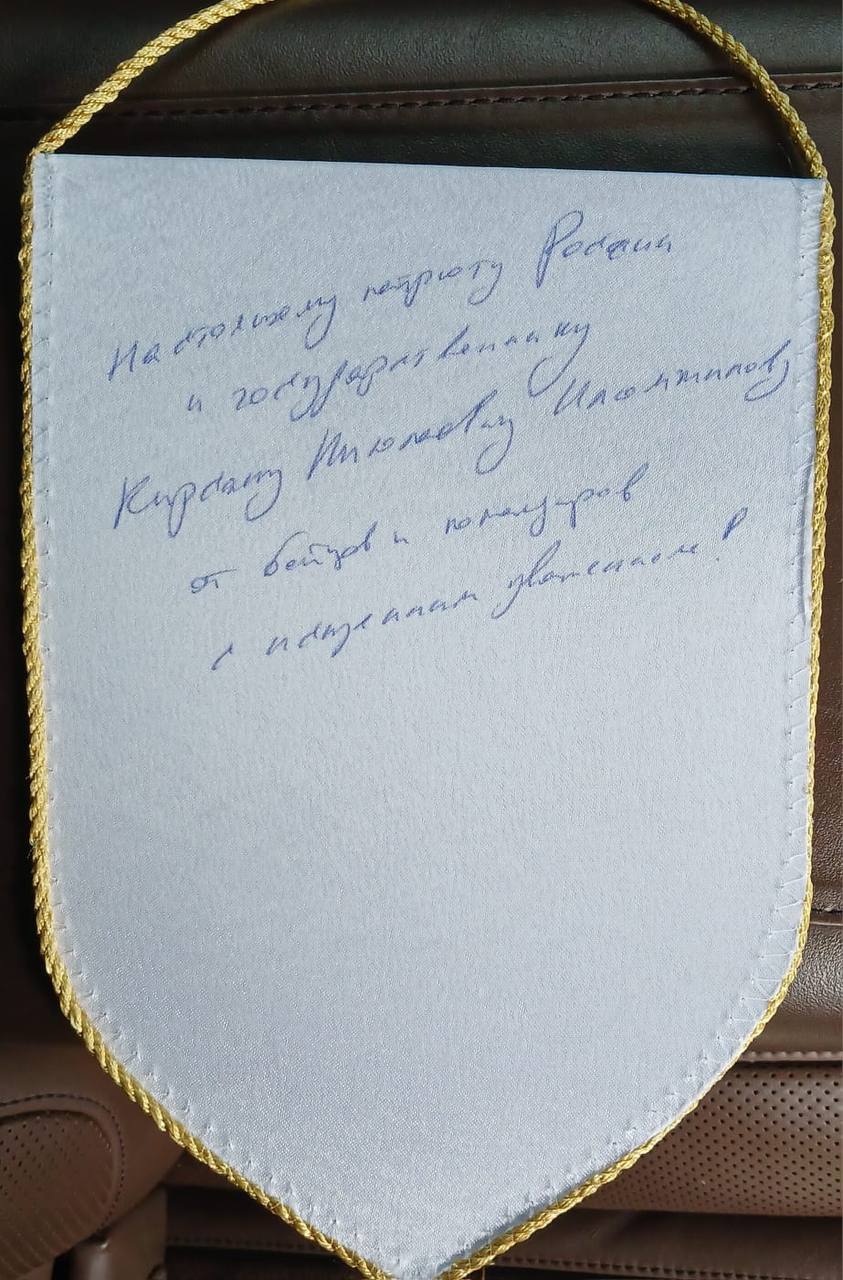 Настоящему патриоту России
и государственнику
Кирсану Николаевичу Илюмжинову
от бойцов и командиров
с искренним уважением!